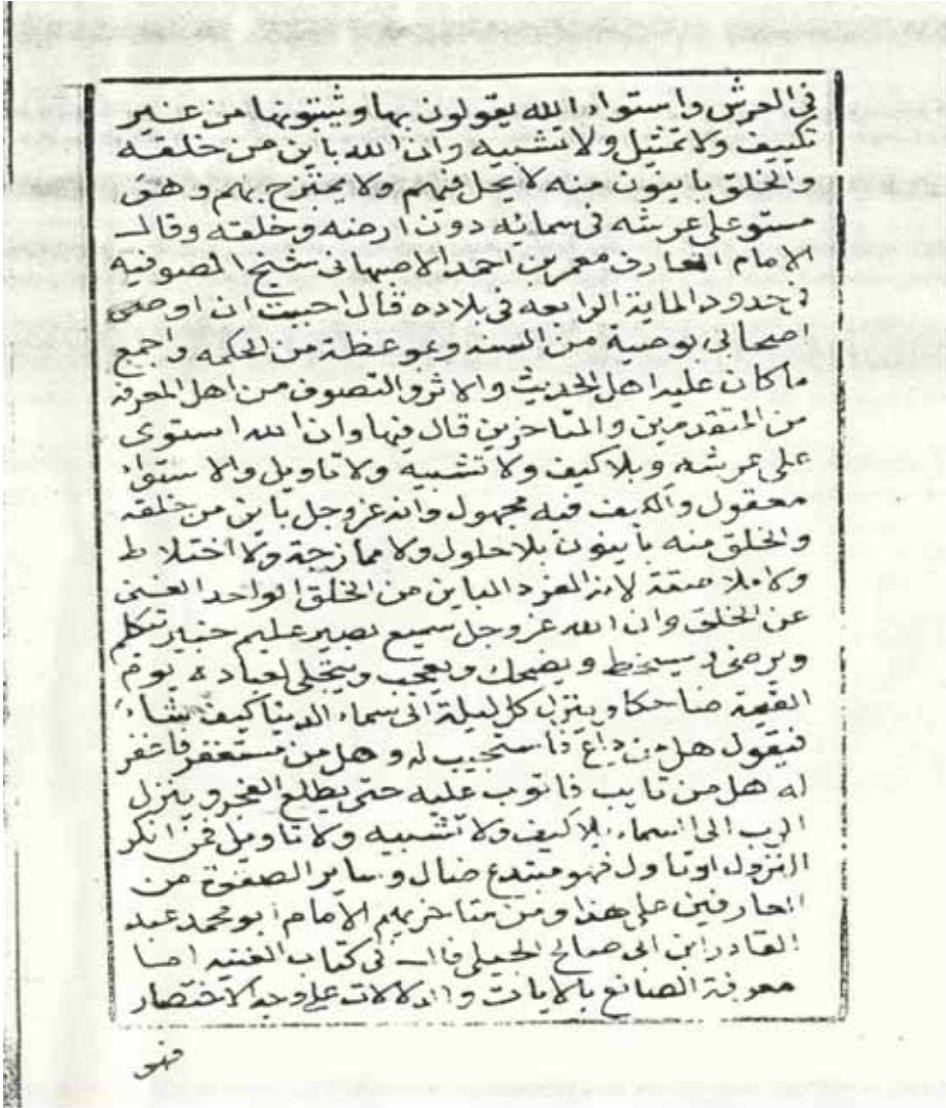 في العرش واستواء الله يقولون بها ويثبتونها من غير
تكييف ولا تمثيل ولا تشبيه وان الله باين من خلقه
والخلق باينون منه لا يحل فيهم ولا يمتزج بهم وهو
مستو على عرشه في سمائه دون ارضه وخلقه وقال
الامام العارف معمر بن احمد الاصبهاني شيخ الصوفيه
في حدود الماية الرابعه في بلاده قال احببت ان اوصي
اصحابي بوصية من السنه وموعظة من الحكمه واجمع
ما كان عليه اهل الحديث والاثر والتصوف من اهل المعرفة
من المتقدمين والمتاخرين قال فيها وان الله استوى
على عرشه وبلا كيف ولا تشبيه ولا تاويل والاستواء
معقول والكيف فيه مجهول وانه عز وجل باين من خلقه
والخلق منه باينون بلا حلول ولا ممازجة ولا اختلاط
ولا ملاصقة لانه الفرد الباين من الخلق الواحد الغني
عن الخلق وان الله عز وجل سميع بصير عليم خبير يتكلم
ويرضى ويسخط ويضحك ويعجب ويتجلى لعباده يوم
القيمة ضاحكا وينزل كل ليلة الى سماء الدنيا كيف شاء
فيقول هل من داع فاستجيب له وهل من مستغفر فاغفر
له هل من تايب فاتوب عليه حتى يطلع الفجر وينزل
الرب الى السماء بلا كيف ولا تشبيه ولا تاويل فمن انكر
النزول او تاول فهو مبتدع ضال وساير الصفوة من
العارفين على هذا ومن متاخريهم الامام ابو محمد عبد
القادر ابن ابي صالح الجيلي قال في كتاب الغنيه اما
معرفة الصانع بالايات والدلالات على وجه الاختصار
فهو